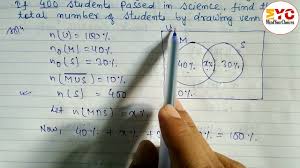 If 400 students passed in science, find the
total number of students by drawing venn
n(U) = 100%
n₀(M) = 40%
n₀(S) = 30%
n(M∪S) = 10%
n(S) = 400
Let n(M∩S) = x%
Now, 40% + x% + = 100%
U
M S
40% x% 30%
10%